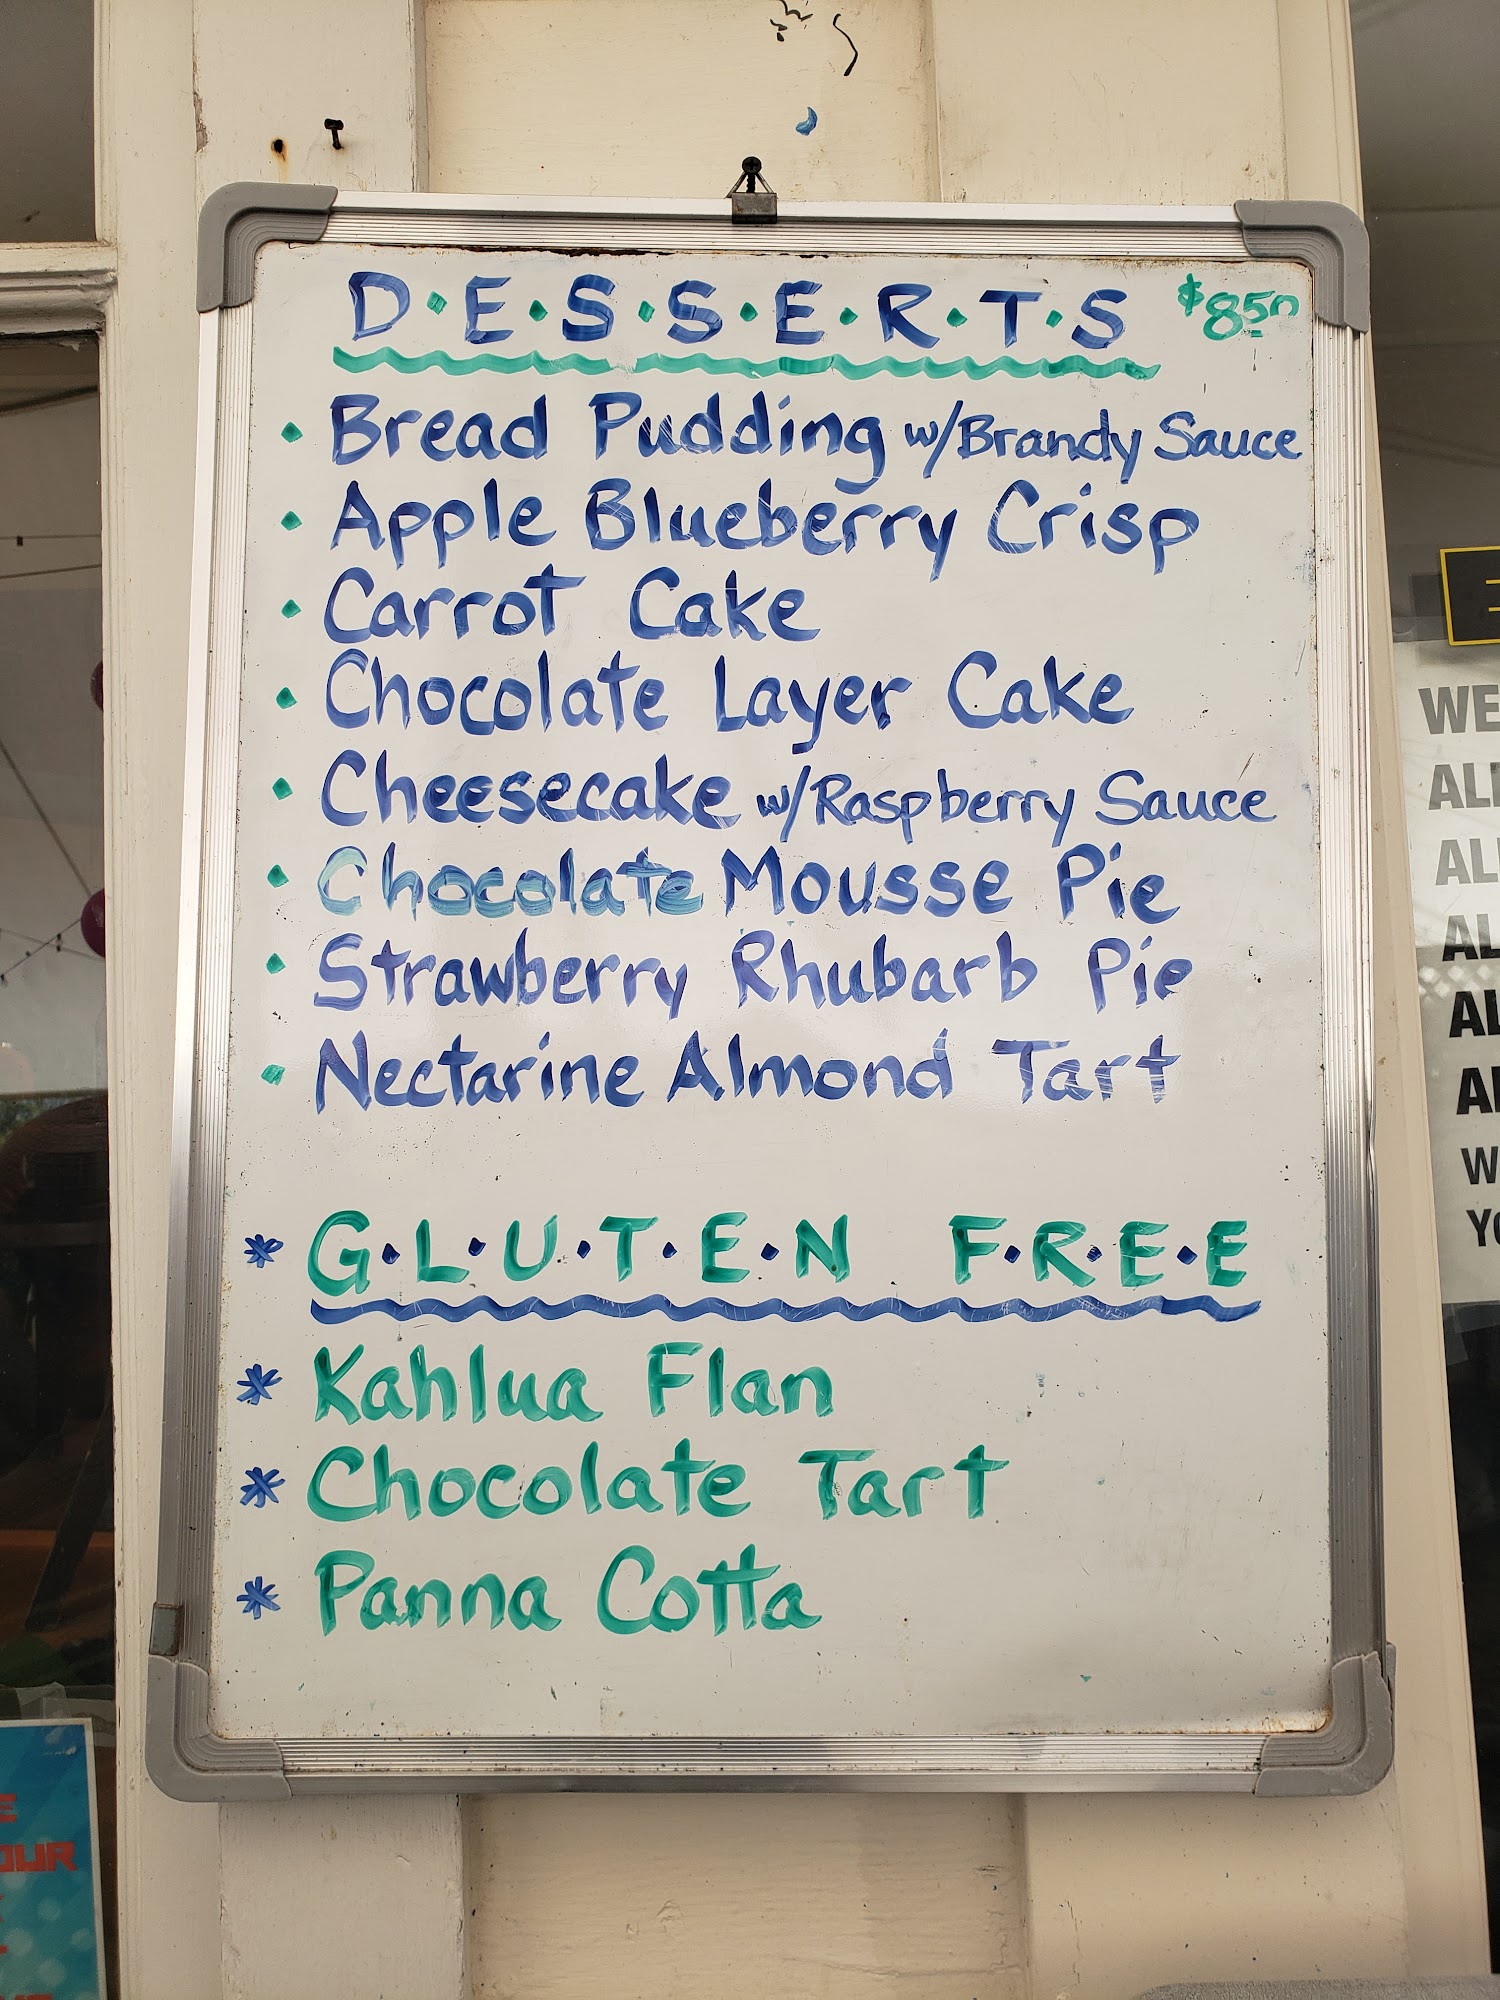 D·E·S·S·E·R·T·S $8.50
· Bread Pudding w/Brandy Sauce
· Apple Blueberry Crisp
· Carrot Cake
· Chocolate Layer Cake
· Cheesecake w/Raspberry Sauce
· Chocolate Mousse Pie
· Strawberry Rhubarb Pie
· Nectarine Almond Tart
* G·L·U·T·E·N F·R·E·E
* Kahlua Flan
* Chocolate Tart
* Panna Cotta
WE